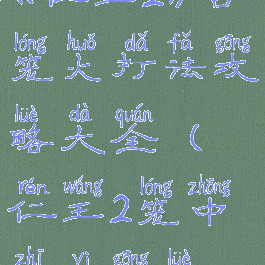 lóng huǒ dǎ fǎ gōng
笼火打法攻
lüè dà quán
略大全（
rén wáng lóng zhōng
仁王2笼中
zhī yì gōng lüè